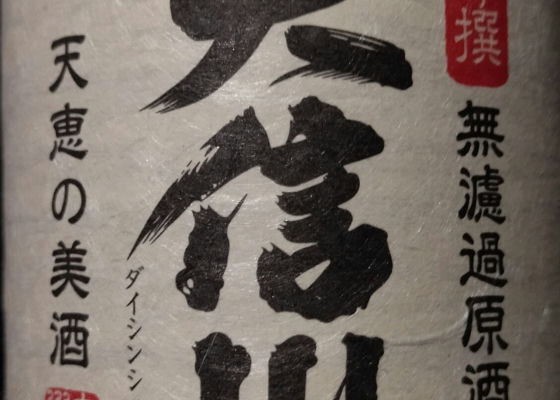 撰
無濾過原酒
大信州
ダイシンシ
天恵の美酒